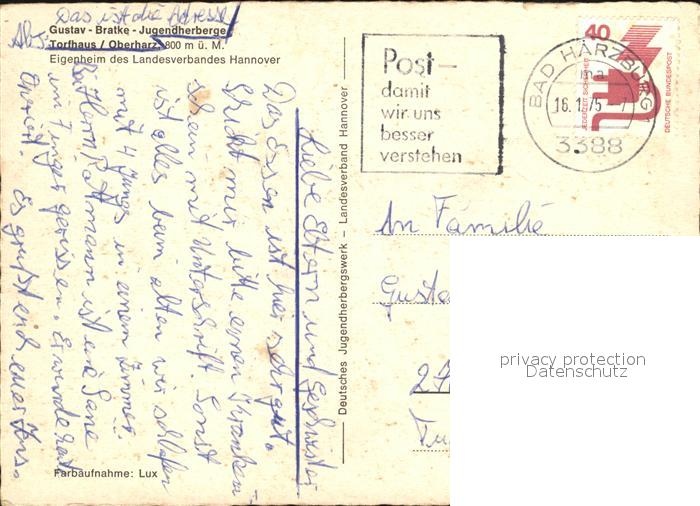 Das ist die Adresse!
Abs.:
Gustav - Bratke - Jugendherberge
Torfhaus / Oberharz, 800 m ü. M.
Eigenheim des Landesverbandes Hannover
Liebe Eltern und Geschwister
Das Essen ist hier sehr gut.
Schickt mir bitte einen Kranken-
schein mit Unterschrift. Sonst
ist alles beim alten wir schlafen
mit 4 Jungs in einem Zimmer.
Herrn ist eine Sane
im Finger gerissen. Er wurde
Es grüßt euch euer Jens.
Farbaufnahme: Lux
Deutsches Jugendherbergswerk - Landesverband Hannover
Post -
damit
wir uns
besser
verstehen
BAD HARZBURG
ma
16.1.75 - 7
3388
40
JEDERZEIT SICHERHEIT
DEUTSCHE BUNDESPOST
An Familie
Gusta
27
privacy protection
Datenschutz